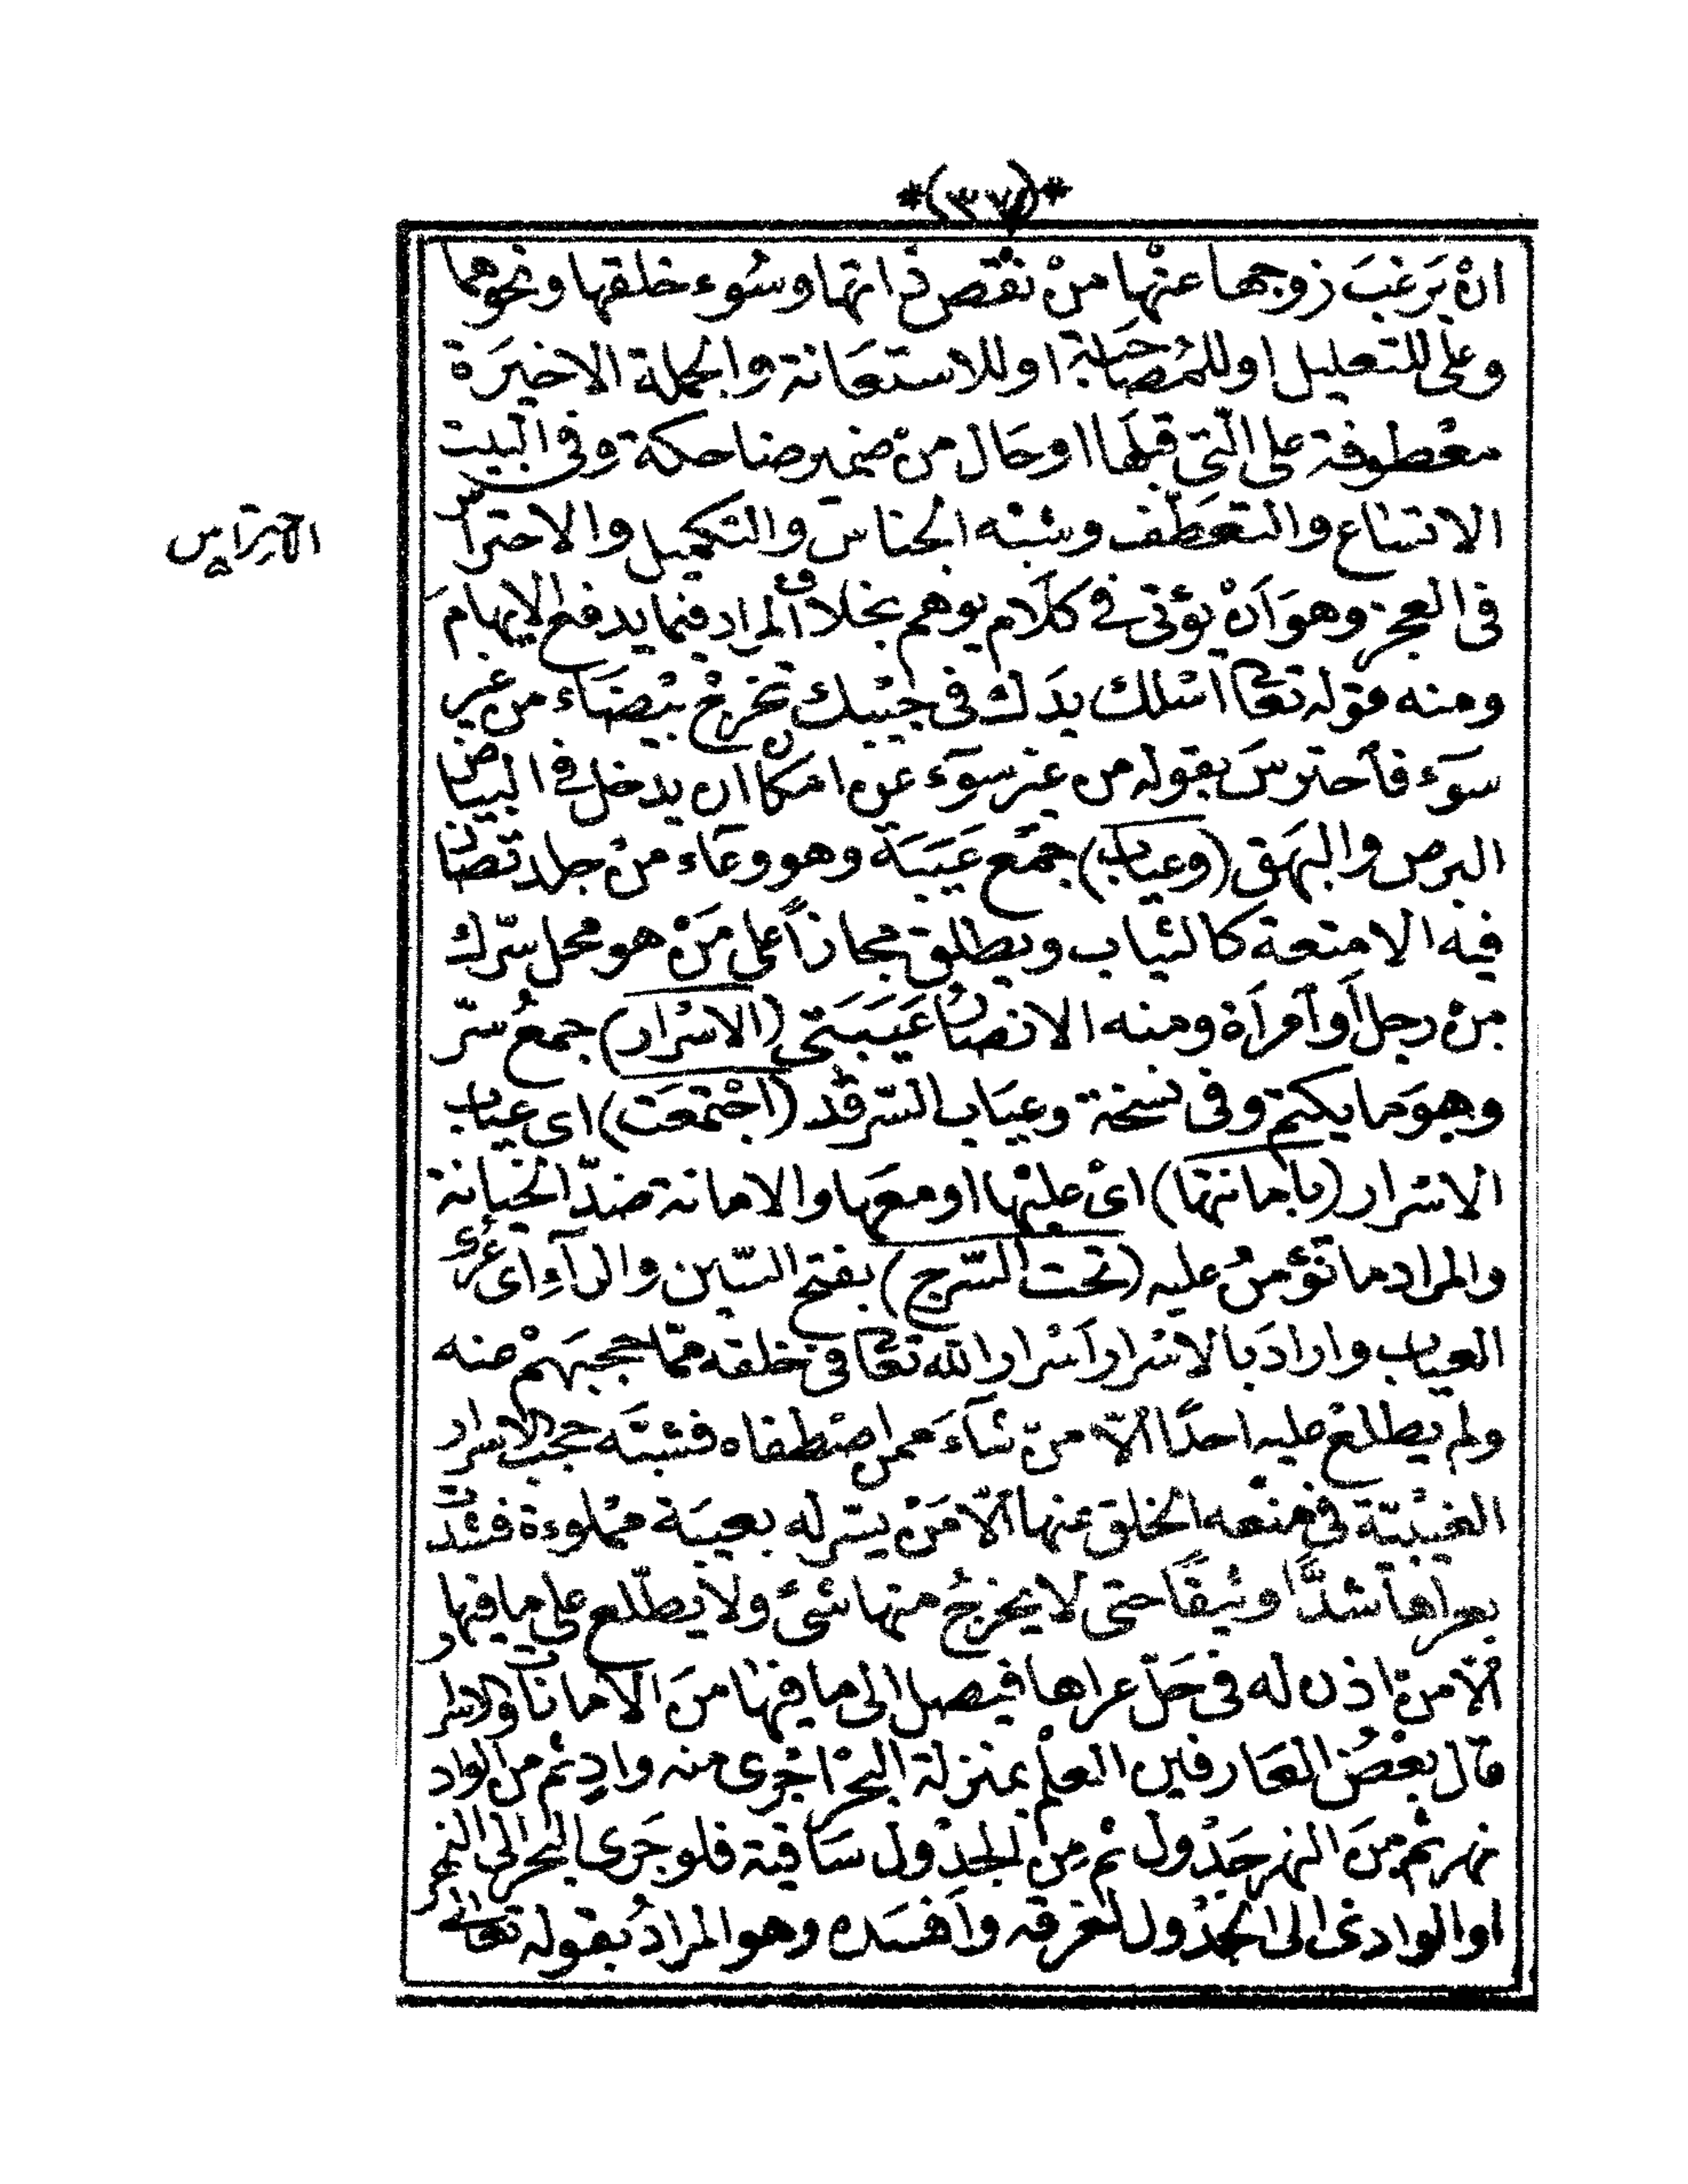 *(٣٧)*
انْ يَرغبَ زوجها عنْها منْ نقْص ذاتها وسُوء خلقها ونحوهما
وعلى للتعليل او للمُصَاحَبة او للاستعَانة والجملة الاخيرَة
معْطوفة على الّتى قبلَها او حَال منْ ضمير ضاحكة وفى البيت
الاتساع والتعَطّف وشبْه الجناس والتكميل والاحتراس
الاحتراس
فى العجز وهوَ اَنْ يؤتى فى كلَام يوهم بخلاف المراد فيما يدفع الايهامَ
ومنه قوله تعَالى اسْلك يدَك فى جيْبك تخرجْ بيْضَاء من غير
سوَء فاحترسَ بقوله من غير سوَء عن امكان ان يدخل فى البياض
البرص والبهَق (وعياب) جمْع عَيبَة وهو وعَاء منْ جلد تصَان
فيه الامتعة كالثياب ويطلق مجازاً على مَنْ هو محل سّرك
منْ رجل اَو اَمرَاة ومنه الانصَارُ عَيبَتى (الاسْرار) جمعُ سّر
وهوَ ما يكتم وفى نسخة وعيَاب السّر قَد (اجْتمعَت) اى عياب
الاسْرار (بامانتها) اىْ عليْها او معَها والامانة ضدّ الخيانة
والمراد ما تؤمنُ عليه (تحت السّرج) بفتح السّين والرآءِ اى عُرىٰ
العياب وارادَ بالاسْرار اَسْرار الله تعَالى فى خلقه ممّا حجبَهمْ منه
ولم يطلعْ عليه احدًا الّا منْ شآءَ ممن اصْطفاه فشبَّه حجب الاسرار
الغيْبيّة فى منْعه الخلق عنها الّا مَنْ يسّر له بعيبَة ممْلوءة فشدّت
بعراها شدًّا وثيقًا حتى لا يخرجُ منها شىْءٌ ولا يطّلع على ما فيها
الّا منْ اذن له فى حَلّ عراها فيصل الى ما فيها منَ الاَمانات والاسرار
قال بعْضُ العَارفين العلْم بمنزلة البحْر اجْرى منه وادٍ ثم من الواد
نهر ثم منَ النهر جَدْول ثم مِنَ الجدْول سَاقية فلو جَرى البحر الى النهر
او الوادى الى الجدْول لغرقه واَفسَده وهو المرادُ بقوله تعَالى